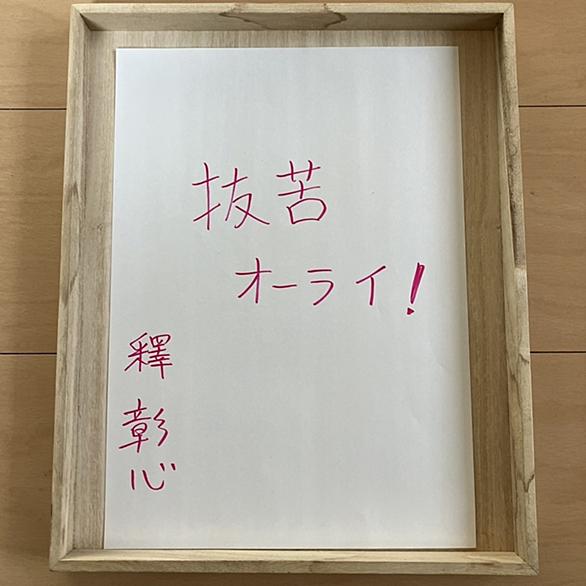 抜苦
オーライ!
釋彰心